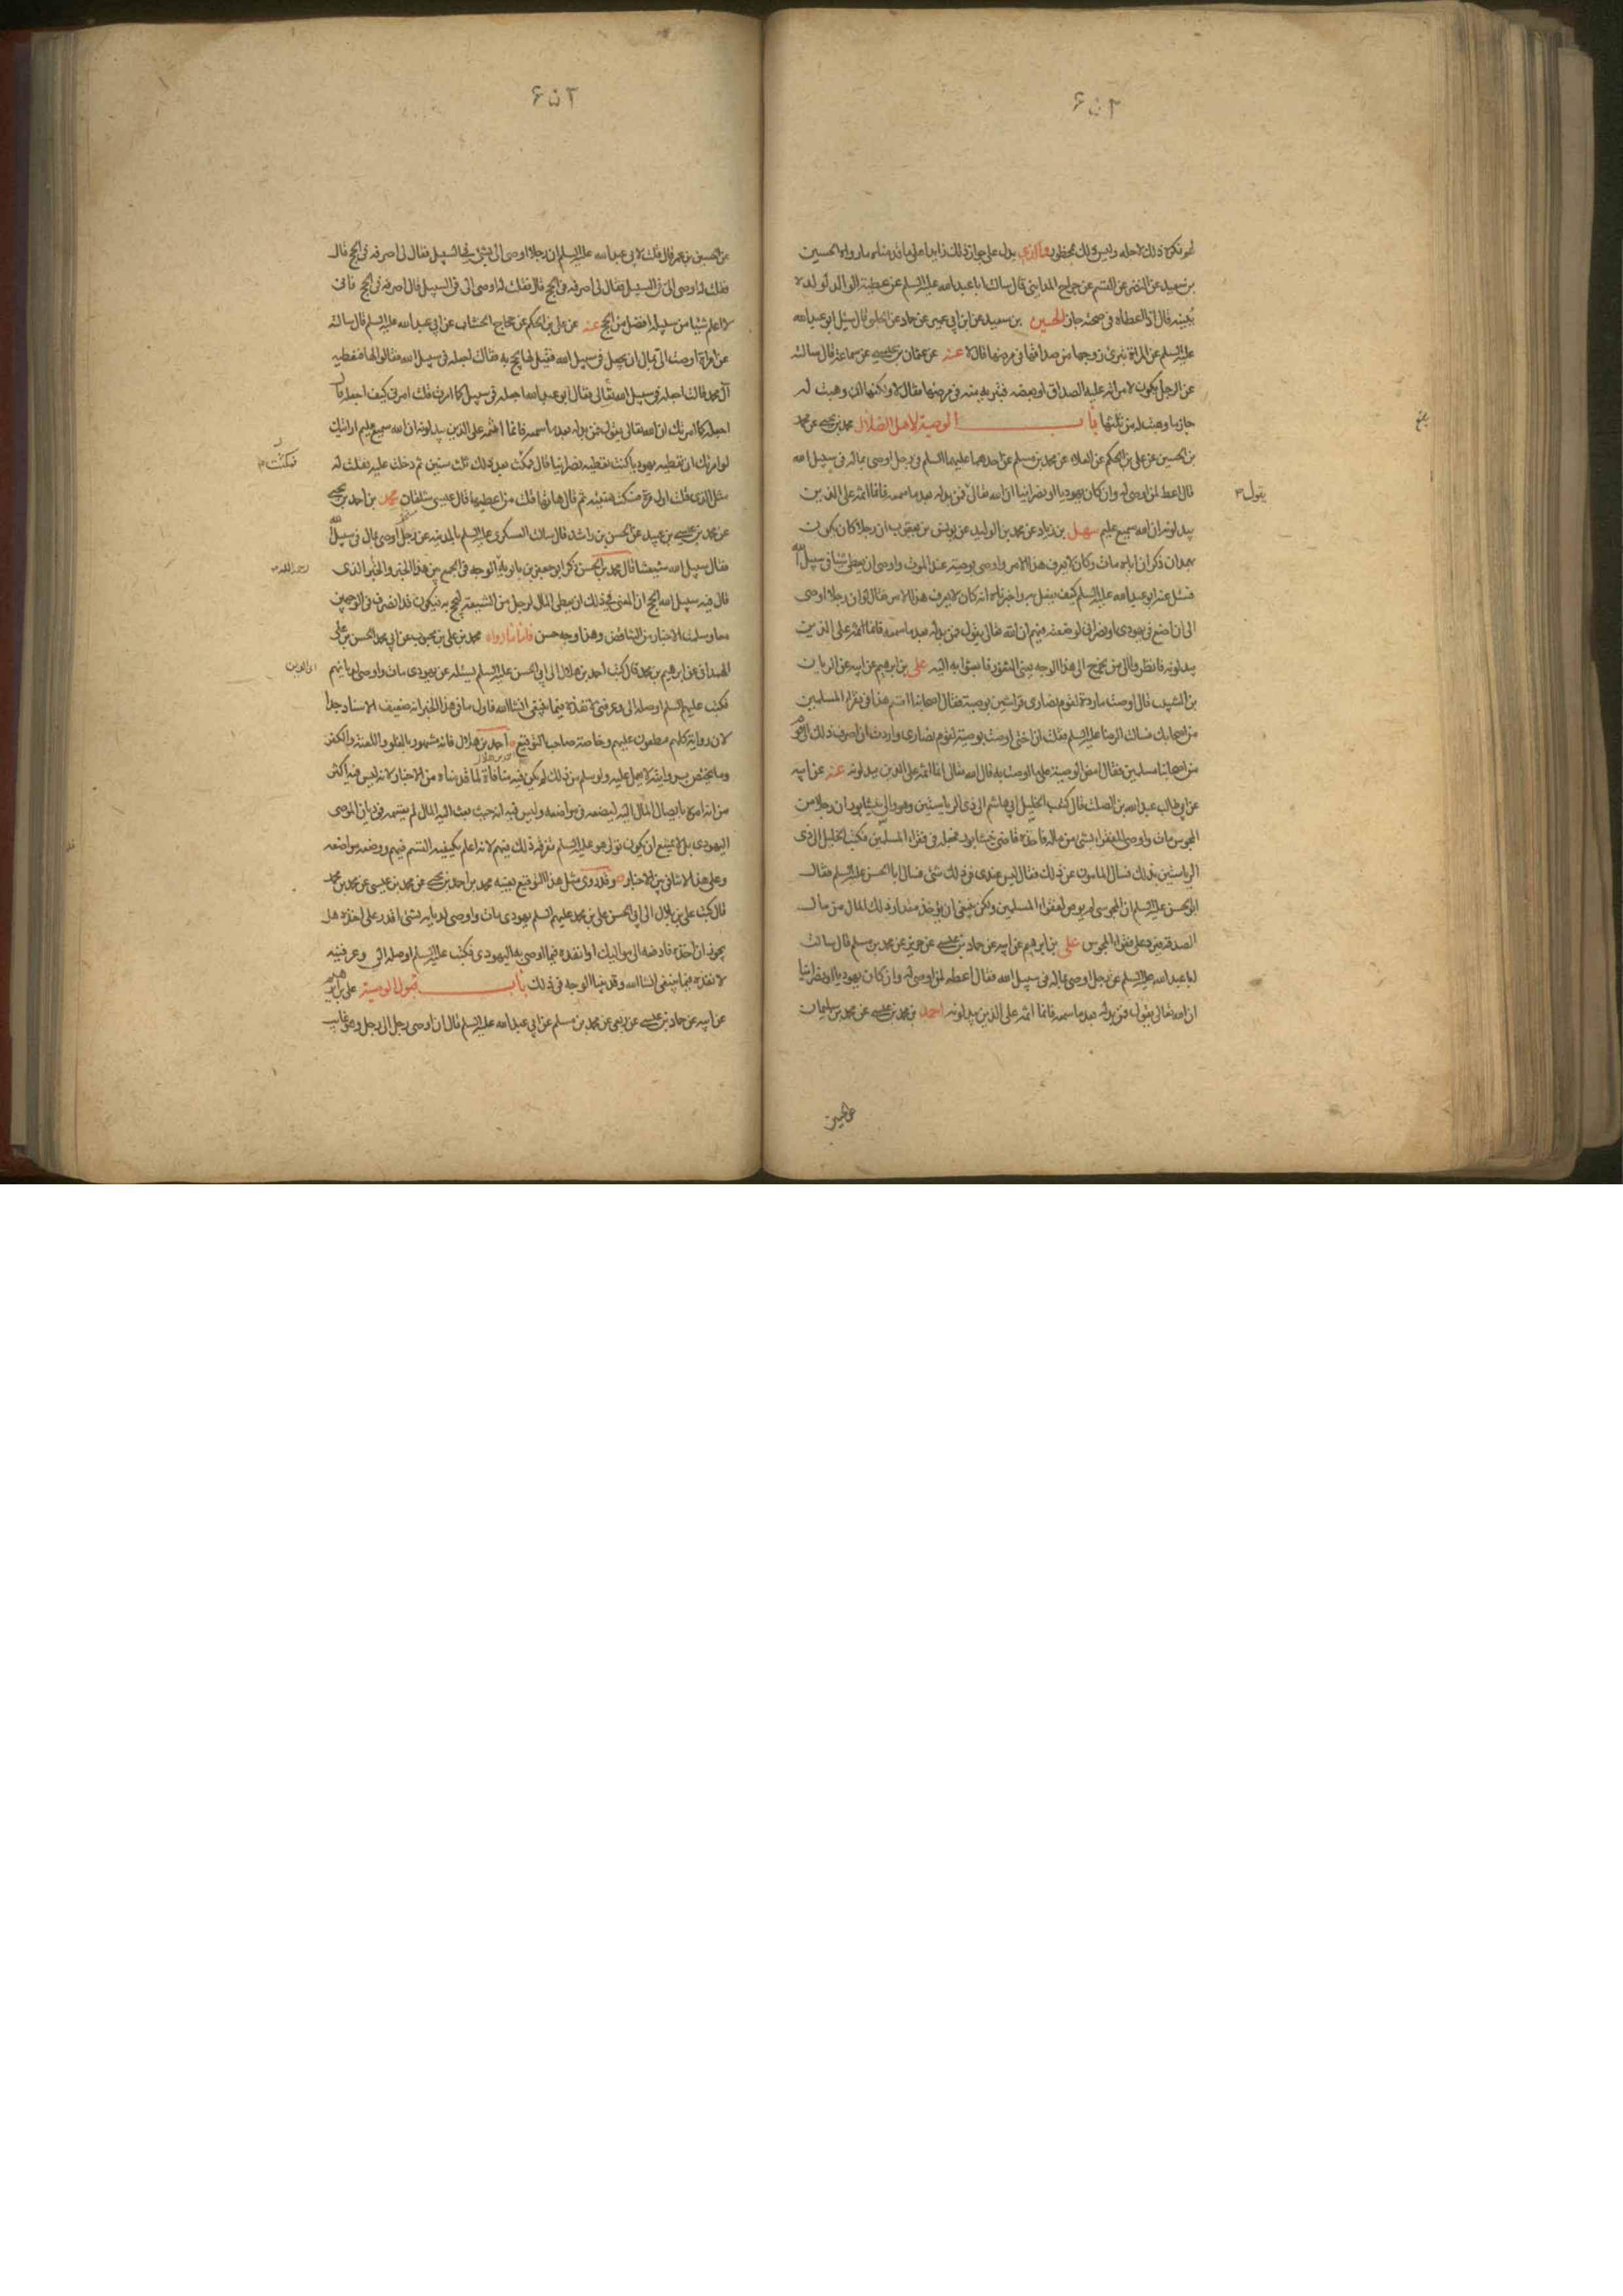 ۶۵۲
لم نكره ذلك لاحله وليس ذلك بمحظور والذي يدل على جواز ذلك زايدا على ما قدمناه ما رواه الحسين
بن سعيد عن النضر عن القسم عن جراح المدايني قال سالت ابا عبد الله عليه السلم عن عطية الوالد لولده
يبينه قال اذا اعطاه في صحته جاز الحسين بن سعيد عن ابن ابي عمير عن حماد عن الحلبي قال سئل ابو عبد الله
عليه السلم عن المراة تبرئ زوجها من صداقها في مرضها قال لا عنه عن عثمان بن عيسى عن سماعة قال سالته
عن الرجل يكون لامراته عليه الصداق او بعضه فتبريه منه في مرضها فقال لا ولكنها ان وهبت له
جاز ما وهبت له من ثلثها باب الوصية لاهل الضلال محمد بن يحيى عن محمد
بن الحسين عن علي بن الحكم عن العلاء عن محمد بن مسلم عن احدهما عليهما السلم في رجل اوصى بماله في سبيل الله
قال اعط لمن اوصى له وان كان يهوديا او نصرانيا ان الله تعالى فمن بدله بعد ما سمعه فانما اثمه على الذين
يقول
يبدلونه ان الله سميع عليم سهل بن زياد عن محمد بن الوليد عن يونس بن يعقوب ان رجلا كان يكون
بهمدان ذكر ان اباه مات وكان لا يعرف هذا الامر واوصى بوصيته عند الموت واوصى ان يعطى شئ في سبيل الله
فسئل عنه ابو عبد الله عليه السلم كيف يفعل به واخبرناه انه كان لا يعرف هذا الامر فقال لو ان رجلا اوصى
الى ان اضع في يهودي او نصراني لوضعته فيهم ان الله تعالى يقول فمن بدله بعد ما سمعه فانما اثمه على الذين
يبدلونه فانظروا الى من يخرج الى هذا الوجه يعني الثغور فابعثوا به اليه علي بن ابرهيم عن ابيه عن الريان
بن الشبيب قال اوصت ماردة لقوم نصارى فراشين بوصية فقال اصحابنا اقسم هذا في فقراء المسلمين
من اصحابك فسالت الرضا عليه السلم فقلت ان اختي اوصت بوصية لقوم نصارى واردت ان اصرف ذلك الى قوم
من اصحابنا مسلمين فقال امض الوصية على ما اوصت به قال الله تعالى انما اثمه على الذين يبدلونه عنه عن ابيه
عن ابي طالب عبد الله بن الصلت قال كتب الخليل بن هاشم الى ذي الرياستين وهو والي نيشابور ان رجلا من
المجوس مات واوصى للفقراء بشئ من ماله فاخذه قاضي نيشابور فجعله في فقراء المسلمين فكتب الخليل الى ذي
الرياستين بذلك فسال المامون عن ذلك فقال ليس عندي في ذلك شئ فسال ابا الحسن عليه السلم فقال
ابو الحسن عليه السلم ان المجوسي لم يوص لفقراء المسلمين ولكن ينبغي ان يؤخذ مقدار ذلك المال من مال
الصدقة فيرد على فقراء المجوس علي بن ابرهيم عن ابيه عن حماد بن عيسى عن حريز عن محمد بن مسلم قال سالت
ابا عبد الله عليه السلم عن رجل اوصى بماله في سبيل الله فقال اعطه لمن اوصى له وان كان يهوديا او نصرانيا
ان الله تعالى يقول فمن بدله بعد ما سمعه فانما اثمه على الذين يبدلونه احمد بن محمد بن عيسى عن محمد بن سليمان
عن الحسين
۶۵۳
عن الحسين بن عمر قال قلت لابي عبد الله عليه السلم ان رجلا اوصى الي بشئ في السبيل فقال لي اصرفه في الحج قال
فقلت له اوصى الي في السبيل فقال لي اصرفه في الحج قال فقلت له اوصى الي في السبيل قال اصرفه في الحج فاني
لا اعلم شيئا من سبيله افضل من الحج عنه عن علي بن الحكم عن حجاج الخشاب عن ابي عبد الله عليه السلم قال سالته
عن امراة اوصت الي بمال ان يجعل في سبيل الله فقيل لها يحج به فقالت اجعله في سبيل الله فقالوا لها فنعطيه
آل محمد قالت اجعله في سبيل الله تعالى فقال ابو عبد الله اجعله في سبيل الله كما امرت قلت امرني كيف اجعله قال
اجعله كما امرتك ان الله تعالى يقول فمن بدله بعد ما سمعه فانما اثمه على الذين يبدلونه ان الله سميع عليم ارايتك
لو امرتك ان تعطيه يهوديا كنت تعطيه نصرانيا قال فمكثت بعد ذلك ثلث سنين ثم دخلت عليه فقلت له
فمكثت
مثل الذي قلت اول مرة فسكت هنيئة ثم قال هاتها قلت من اعطيها قال عيسى شلقان محمد بن احمد بن يحيى
عن محمد بن عيسى بن عبيد عن الحسن بن راشد قال سالت العسكري عليه السلم بالمدينة عن رجل اوصى بمال في سبيل الله
فقال سبيل الله شيعتنا قال محمد بن الحسن ذكر ابو جعفر بن بابويه الوجه في الجمع بين هذا الخبر والخبر الذي
رحمه الله
قال فيه سبيل الله الحج ان المعنى في ذلك ان يعطى المال لرجل من الشيعة ليحج به فيكون قد انصرف في الوجهين
معا وسلمت الاخبار من التناقض وهذا وجه حسن فاما ما رواه محمد بن علي بن محبوب عن ابي محمد الحسن بن علي
الهمداني عن ابرهيم بن محمد قال كتب احمد بن هلال الى ابي الحسن عليه السلم يسئله عن يهودي مات واوصى لديانهم
فكتب عليه السلم اوصله الي وعرفني لانفذه فيما ينبغي انشاالله فاول ما في هذا الخبر انه ضعيف الاسناد جدا
لان رواته كلهم مطعون عليهم وخاصة صاحب التوقيع احمد بن هلال فانه مشهور بالغلو واللعنة والكفر
وما يختص بروايته لا يعمل عليه ولو سلم من ذلك لم يكن فيه منافاة لما قدمناه من الاخبار لانه ليس فيه اكثر
من انه امره بايصال المال اليه ليضعه في مواضعه وليس فيه انه حيث بعث اليه المال لم يقسمه في ديان الموصي
اليهودي بل لا يمتنع ان يكون تولى هو عليه السلم تفرقة ذلك فيهم لانه اعلم بكيفية القسم فيهم ووضعه مواضعه
وعلى هذا لا تنافي بين الاخبار وقد روى مثل هذا التوقيع بعينه محمد بن احمد بن يحيى عن محمد بن عيسى عن محمد بن محمد
قال كتب علي بن بلال الى ابي الحسن علي بن محمد عليهم السلم يهودي مات واوصى لديانه بشئ اقدر على اخذه هل
يجوز ان اخذه فادفعه الى مواليك او انفذه فيما اوصى به اليهودي فكتب عليه السلم اوصله الي وعرفنيه
لانفذه فيما ينبغي انشاالله وقد بينا الوجه في ذلك باب قبول الوصية علي بن ابرهيم
عن ابيه عن حماد بن عيسى عن ربعي عن محمد بن مسلم عن ابي عبد الله عليه السلم قال ان اوصى رجل الى رجل وهو غايب